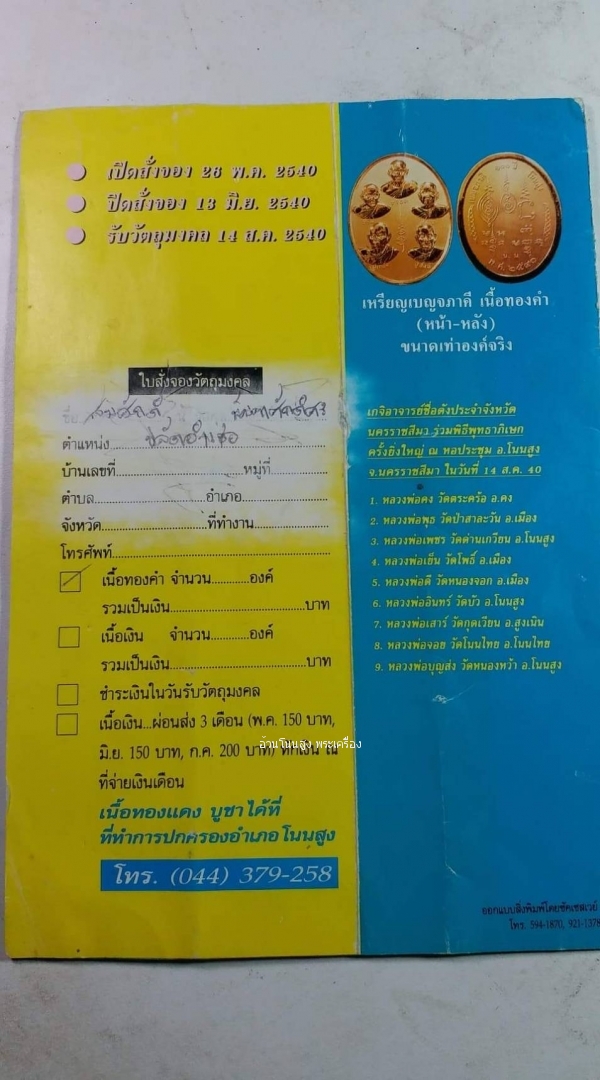 เปิดสั่งจอง 26 พ.ค. 2540
ปิดสั่งจอง 13 มิ.ย. 2540
รับวัตถุมงคล 14 ส.ค. 2540
ใบสั่งจองวัตถุมงคล
ชื่อ
ตำแหน่ง
บ้านเลขที่..............................หมู่ที่..............
ตำบล..........................อำเภอ....................
จังหวัด........................ที่ทำงาน..................
โทรศัพท์..................................................
เนื้อทองคำ จำนวน............องค์
รวมเป็นเงิน................................บาท
เนื้อเงิน จำนวน............องค์
รวมเป็นเงิน................................บาท
ชำระเงินในวันรับวัตถุมงคล
เนื้อเงิน...ผ่อนส่ง 3 เดือน (พ.ค. 150 บาท,
มิ.ย. 150 บาท, ก.ค. 200 บาท) หักเงิน ณ
ที่จ่ายเงินเดือน
เนื้อทองแดง บูชาได้ที่
ที่ทำการปกครองอำเภอโนนสูง
โทร. (044) 379-258
เหรียญเบญจภาคี เนื้อทองคำ
(หน้า-หลัง)
ขนาดเท่าองค์จริง
เกจิอาจารย์ชื่อดังประจำจังหวัด
นครราชสีมา ร่วมพิธีพุทธาภิเษก
ครั้งยิ่งใหญ่ ณ หอประชุม อ.โนนสูง
จ.นครราชสีมา ในวันที่ 14 ส.ค. 40
1. หลวงพ่อคง วัดตะคร้อ อ.คง
2. หลวงพ่อพุธ วัดป่าสาละวัน อ.เมือง
3. หลวงพ่อเพชร วัดด่านเกวียน อ.โนนสูง
4. หลวงพ่อเย็น วัดโพธิ์ อ.เมือง
5. หลวงพ่อดี วัดหนองจอก อ.เมือง
6. หลวงพ่ออินทร์ วัดบัว อ.โนนสูง
7. หลวงพ่อเสาร์ วัดกุดเวียน อ.สูงเนิน
8. หลวงพ่อจอย วัดโนนไทย อ.โนนไทย
9. หลวงพ่อบุญส่ง วัดหนองหว้า อ.โนนสูง
ออกแบบสิ่งพิมพ์โดยซัคเซสเวย์
โทร. 594-1870, 921-1378
อ้วนโนนสูง พระเครื่อง